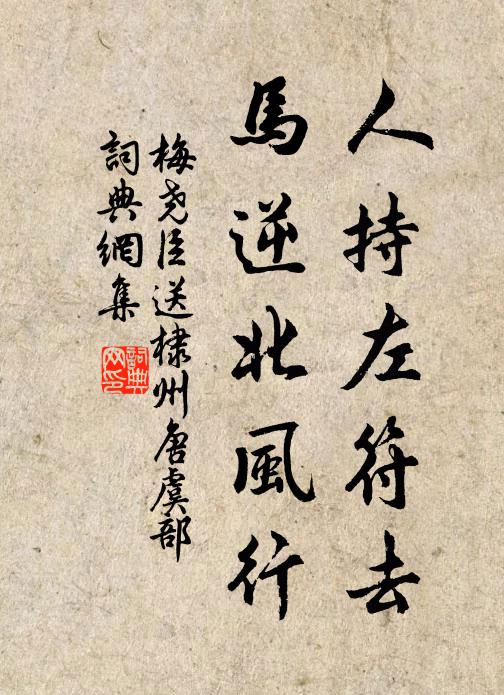 人持左符去
馬逆北風行
梅堯臣送棣州唐虞部
詞典網集
詞典
网印